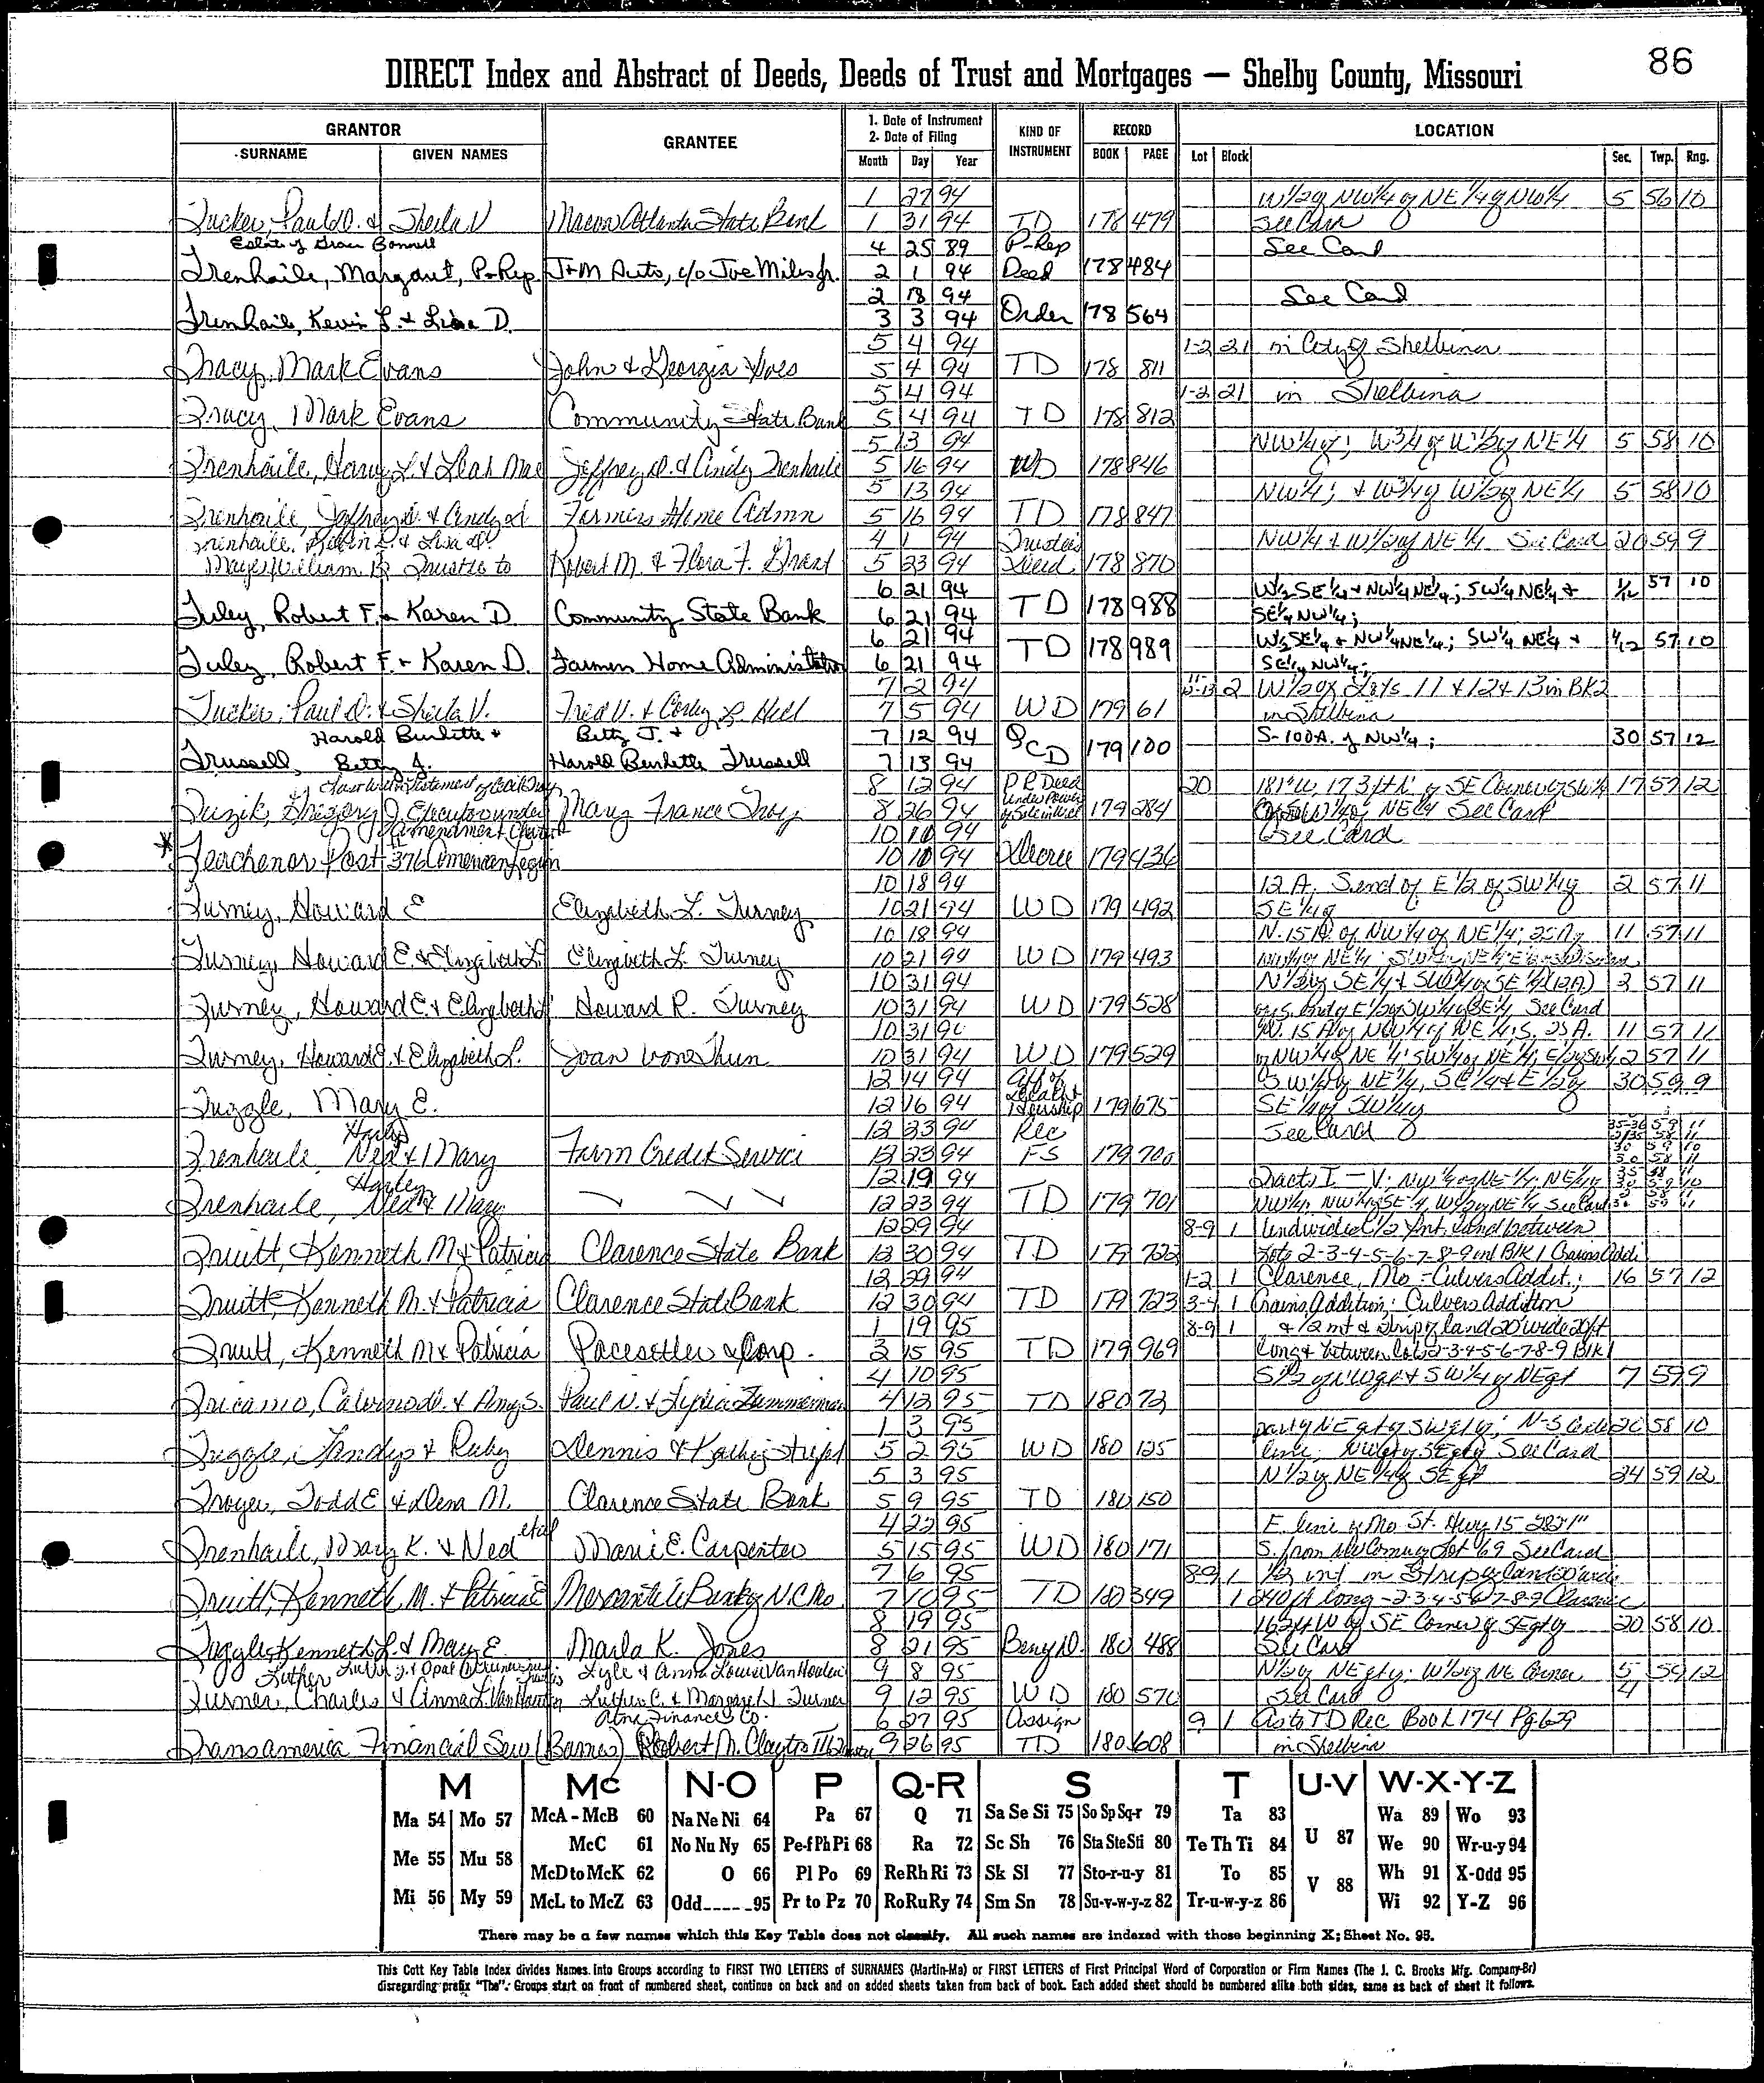 86
DIRECT Index and Abstract of Deeds, Deeds of Trust and Mortgages — Shelby County, Missouri
GRANTOR GRANTEE 1. Date of Instrument 2. Date of Filing KIND OF INSTRUMENT RECORD LOCATION
SURNAME GIVEN NAMES Month Day Year BOOK PAGE Lot Block Sec. Twp. Rng.
1 27 94 W 1/2 of NW 1/4 of NE 1/4 of NW 1/4 5 56 10
Tucker, Paul D. & Sheila V Macon Atlanta State Bank 1 31 94 TD 178 479 See Card
Estate of Bonnell 4 25 89 P-Rep See Card
Trenhaile, Margaret, P-Rep. J+M Auto, c/o Joe Miles Jr. 2 1 94 Deed 178 484
2 18 94 See Card
Trenhaile, Kevin L. + Lisa D. 3 3 94 Order 178 564
5 4 94 1-2 21 in City of Shelbina
Tracy, Mark Evans John & Georgia 5 4 94 TD 178 811
5 4 94 1-2 21 in Shelbina
Tracy, Mark Evans Community State Bank 5 4 94 TD 178 812
5 13 94 NW 1/4 of; W 3/4 of W 1/2 of NE 1/4 5 58 10
Trenhaile, Harvey L. & Leah Mae Jeffrey D. & Cindy Trenhaile 5 16 94 WD 178 846
5 13 94 NW 1/4; & W 3/4 of W 1/2 of NE 1/4 5 58 10
Trenhaile, Jeffrey D. & Cindy Farmers Home Admn 5 16 94 TD 178 847
Trenhaile, Kevin L. & Lisa D. 4 1 94 Trustee's NW 1/4 & W 1/2 of NE 1/4 See Card 20 59 9
William B Trustee to Robert M. & Flora F. Grant 5 23 94 Deed 178 870
6 21 94 W 1/2 SE 1/4 + NW 1/4 NE 1/4; SW 1/4 NE 1/4 + 1/12 57 10
Tuley, Robert F. & Karen D Community State Bank 6 21 94 TD 178 988 SE 1/4 NW 1/4;
6 21 94 W 1/2 SE 1/4 + NW 1/4 NE 1/4; SW 1/4 NE 1/4 + 1/12 57 10
Tuley, Robert F. + Karen D. Farmers Home Administration 6 21 94 TD 178 989 SE 1/4 NW 1/4;
7 2 94 2 W 1/2 of Lots 11 & 12 & 13 in BK 2
Tucker, Paul D. & Sheila V. Fred V. & L. Hill 7 5 94 WD 179 61 in Shelbina
Harold Burdette + Betty J. + 7 12 94 QCD S-100A. of NW 1/4; 30 57 12
Trussell, Betty J. Harold Burdette Trussell 7 13 94 179 100
8 12 94 P R Deed 20 of SE Corner of SW 1/4 17 57 12
Tuzik, Gregory J. Executor under Mary France Troy 8 26 94 Under Power of Sale in Will 179 284 NE 1/4 See Card
Amendment Charter 10 10 94 See Card
* Post 376 American Legion 10 10 94 Decree 179 436
10 18 94 12 A. S end of E 1/2 of SW 1/4 of 2 57 11
Turney, Howard E Elizabeth L. Turney 10 21 94 WD 179 492 SE 1/4 of
10 18 94 N. 15 A of NW 1/4 of NE 1/4; 25 A of 11 57 11
Turney, Howard E. & Elizabeth L. Elizabeth L. Turney 10 21 94 WD 179 493 NW 1/4 of NE 1/4
10 31 94 N 1/2 of SE 1/4 & SW 1/4 of SE 1/4 (12A) 2 57 11
Turney, Howard E. & Elizabeth L Howard R. Turney 10 31 94 WD 179 528 See Card
10 31 N. 15 A of NW 1/4 of NE 1/4; S. 25 A. 11 57 11
Turney, Howard E. & Elizabeth L. Joan VoneThun 10 31 94 WD 179 529 of NW 1/4 of NE 1/4; SW 1/4 of NE 1/4; 2 57 11
12 14 94 Aff of SW 1/4 of NE 1/4, SE 1/4 & E 1/2 of 30 59 9
Tuggle, Mary E. 12 16 94 Heirship 179 675 SE 1/4 of SW 1/4
Harley 12 23 94 Rec See Card
Trenhaile, Ned & Mary Farm Credit Service 12 23 94 FS 179 700
Harley 12 19 94 Tracts I – V: NW 1/4 of NE 1/4; NE 1/4
Trenhaile, Ned & Mary 12 23 94 TD 179 701 NW 1/4, NW 1/4 SE 1/4, W 1/2 of NE 1/4 See Card
12 29 94 8-9 1 Undivided 1/2 int. land between
Truitt, Kenneth M & Patricia Clarence State Bank 12 30 94 TD 179 722 Lots 2-3-4-5-6-7-8-9 in Blk 1 Crains Addi
12 29 94 1-2 1 Clarence, Mo - Culvers Addit.; 16 57 12
Truitt, Kenneth M. & Patricia Clarence State Bank 12 30 94 TD 179 723 3-4 1 Crains Addition; Culvers Addition
1 19 95 8-9 1 & 1/2 int & Strip of land 20' wide
Truitt, Kenneth M & Patricia Pacesetter Corp. 2 15 95 TD 179 969 Long & between Lots 2-3-4-5-6-7-8-9 Blk 1
4 10 95 7 59 9
Tricamo, & Amy S. Paul N. & Lydia Zimmerman 4 12 95 TD 180 72
1 3 95 58 10
Tuggle, Landys & Ruby Dennis & Kathy 5 2 95 WD 180 125 line; See Card
5 3 95 N 1/2 of NE 1/4 of SE qt 24 59 12
Troyer, Todd E & Dena M. Clarence State Bank 5 9 95 TD 180 150
etal 4 22 95 E. line of Mo St. Hwy 15
Trenhaile, Mary K. & Ned Marie E. Carpenter 5 15 95 WD 180 171 S. from NW Corner of Lot 69 See Card
7 6 95 8-9 1 1/2 int in Strip of land 20' wide
Truitt, Kenneth M. & Patricia E Mercantile Bank of N.C. Mo 7 10 95 TD 180 349 1 240 ft long - 2-3-4-5-6-7-8-9 Clarence
8 19 95 SE Corner of SE qt of 20 58 10
Tuggle, Kenneth L. & Mary E. Marla K. Jones 8 21 95 Beny D. 180 488 See Card
Luther & Opal Lyle & Anna Louise VanHouten 9 8 95 N 1/2 of NE qty; W 1/2 of NE Corner 5 59 12
Turner, Charles & Anna L VanHouten Luther C. & Margaret J. Turner 9 12 95 WD 180 570 See Card 4
Atna Finance Co. 6 27 95 Assign 9 1 As to TD Rec Book 174 Pg 629
Transamerica Financial Serv (Barnes) Robert M. Clayton III 9 26 95 TD 180 608 in Shelbina
M Mc N-O P Q-R S T U-V W-X-Y-Z
Ma 54 Mo 57 McA - McB 60 Na Ne Ni 64 Pa 67 Q 71 Sa Se Si 75 So Sp Sq-r 79 Ta 83 U 87 Wa 89 Wo 93
Me 55 Mu 58 McC 61 No Nu Ny 65 Pe-f Ph Pi 68 Ra 72 Sc Sh 76 Sta Ste Sti 80 Te Th Ti 84 We 90 Wr-u-y 94
McD to McK 62 O 66 Pl Po 69 Re Rh Ri 73 Sk Sl 77 Sto-r-u-y 81 To 85 V 88 Wh 91 X-Odd 95
Mi 56 My 59 McL to McZ 63 Odd 95 Pr to Pz 70 Ro Ru Ry 74 Sm Sn 78 Su-v-w-y-z 82 Tr-u-w-y-z 86 Wi 92 Y-Z 96
There may be a few names which this Key Table does not classify. All such names are indexed with those beginning X; Sheet No. 95.
This Cott Key Table Index divides Names. Into Groups according to FIRST TWO LETTERS of SURNAMES (Martin-Ma) or FIRST LETTERS of First Principal Word of Corporation or Firm Names (The J. C. Brooks Mfg. Company-Br)
disregarding prefix "The". Groups start on front of numbered sheet, continue on back and on added sheets taken from back of book. Each added sheet should be numbered alike both sides, same as back of sheet it follows.